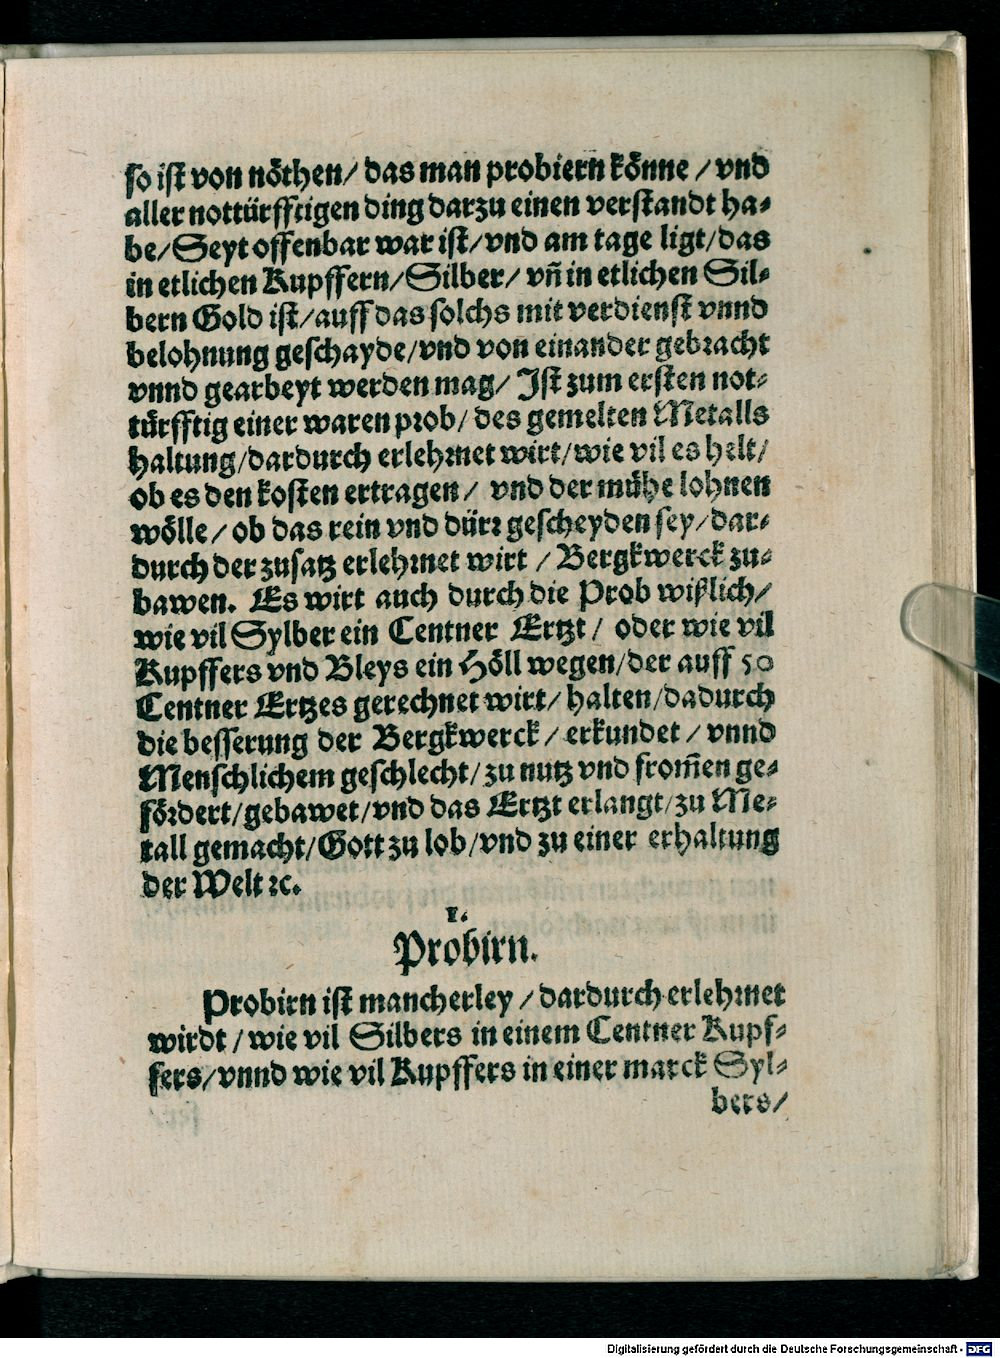 so ist von nöthen/ das man probiern könne / vnd
aller nottürfftigen ding darzu einen verstandt ha⸗
be/ Seyt offenbar war ist/ vnd am tage ligt/ das
in etlichen Kupffern/ Silber/ vñ in etlichen Sil⸗
bern Gold ist/ auff das solchs mit verdienst vnnd
belohnung geschayde/ vnd von einander gebracht
vnnd gearbeyt werden mag/ Ist zum ersten not⸗
türfftig einer waren prob/ des gemelten Metalls
haltung/ dardurch erlehrnet wirt/ wie vil es helt/
ob es den kosten ertragen/ vnd der mühe lohnen
wölle / ob das rein vnd dürr gescheyden sey/ dar⸗
durch der zusatz erlehrnet wirt / Bergkwerck zu⸗
bawen. Es wirt auch durch die Prob wißlich/
wie vil Sylber ein Centner Ertzt / oder wie vil
Kupffers vnd Bleys ein Höll wegen/ der auff 50
Centner Ertzes gerechnet wirt/ halten/ dadurch
die besserung der Bergkwerck / erkundet / vnnd
Menschlichem geschlecht/ zu nutz vnd from̃en ge⸗
fördert/ gebawet/ vnd das Ertzt erlangt/ zu Me⸗
tall gemacht/ Gott zu lob/ vnd zu einer erhaltung
der Welt ꝛc.
I.
Probirn.
Probirn ist mancherley / dardurch erlehrnet
wirdt / wie vil Silbers in einem Centner Kupf⸗
fers/ vnnd wie vil Kupffers in einer marck Syl⸗
bers/
Digitalisierung gefördert durch die Deutsche Forschungsgemeinschaft - DFG